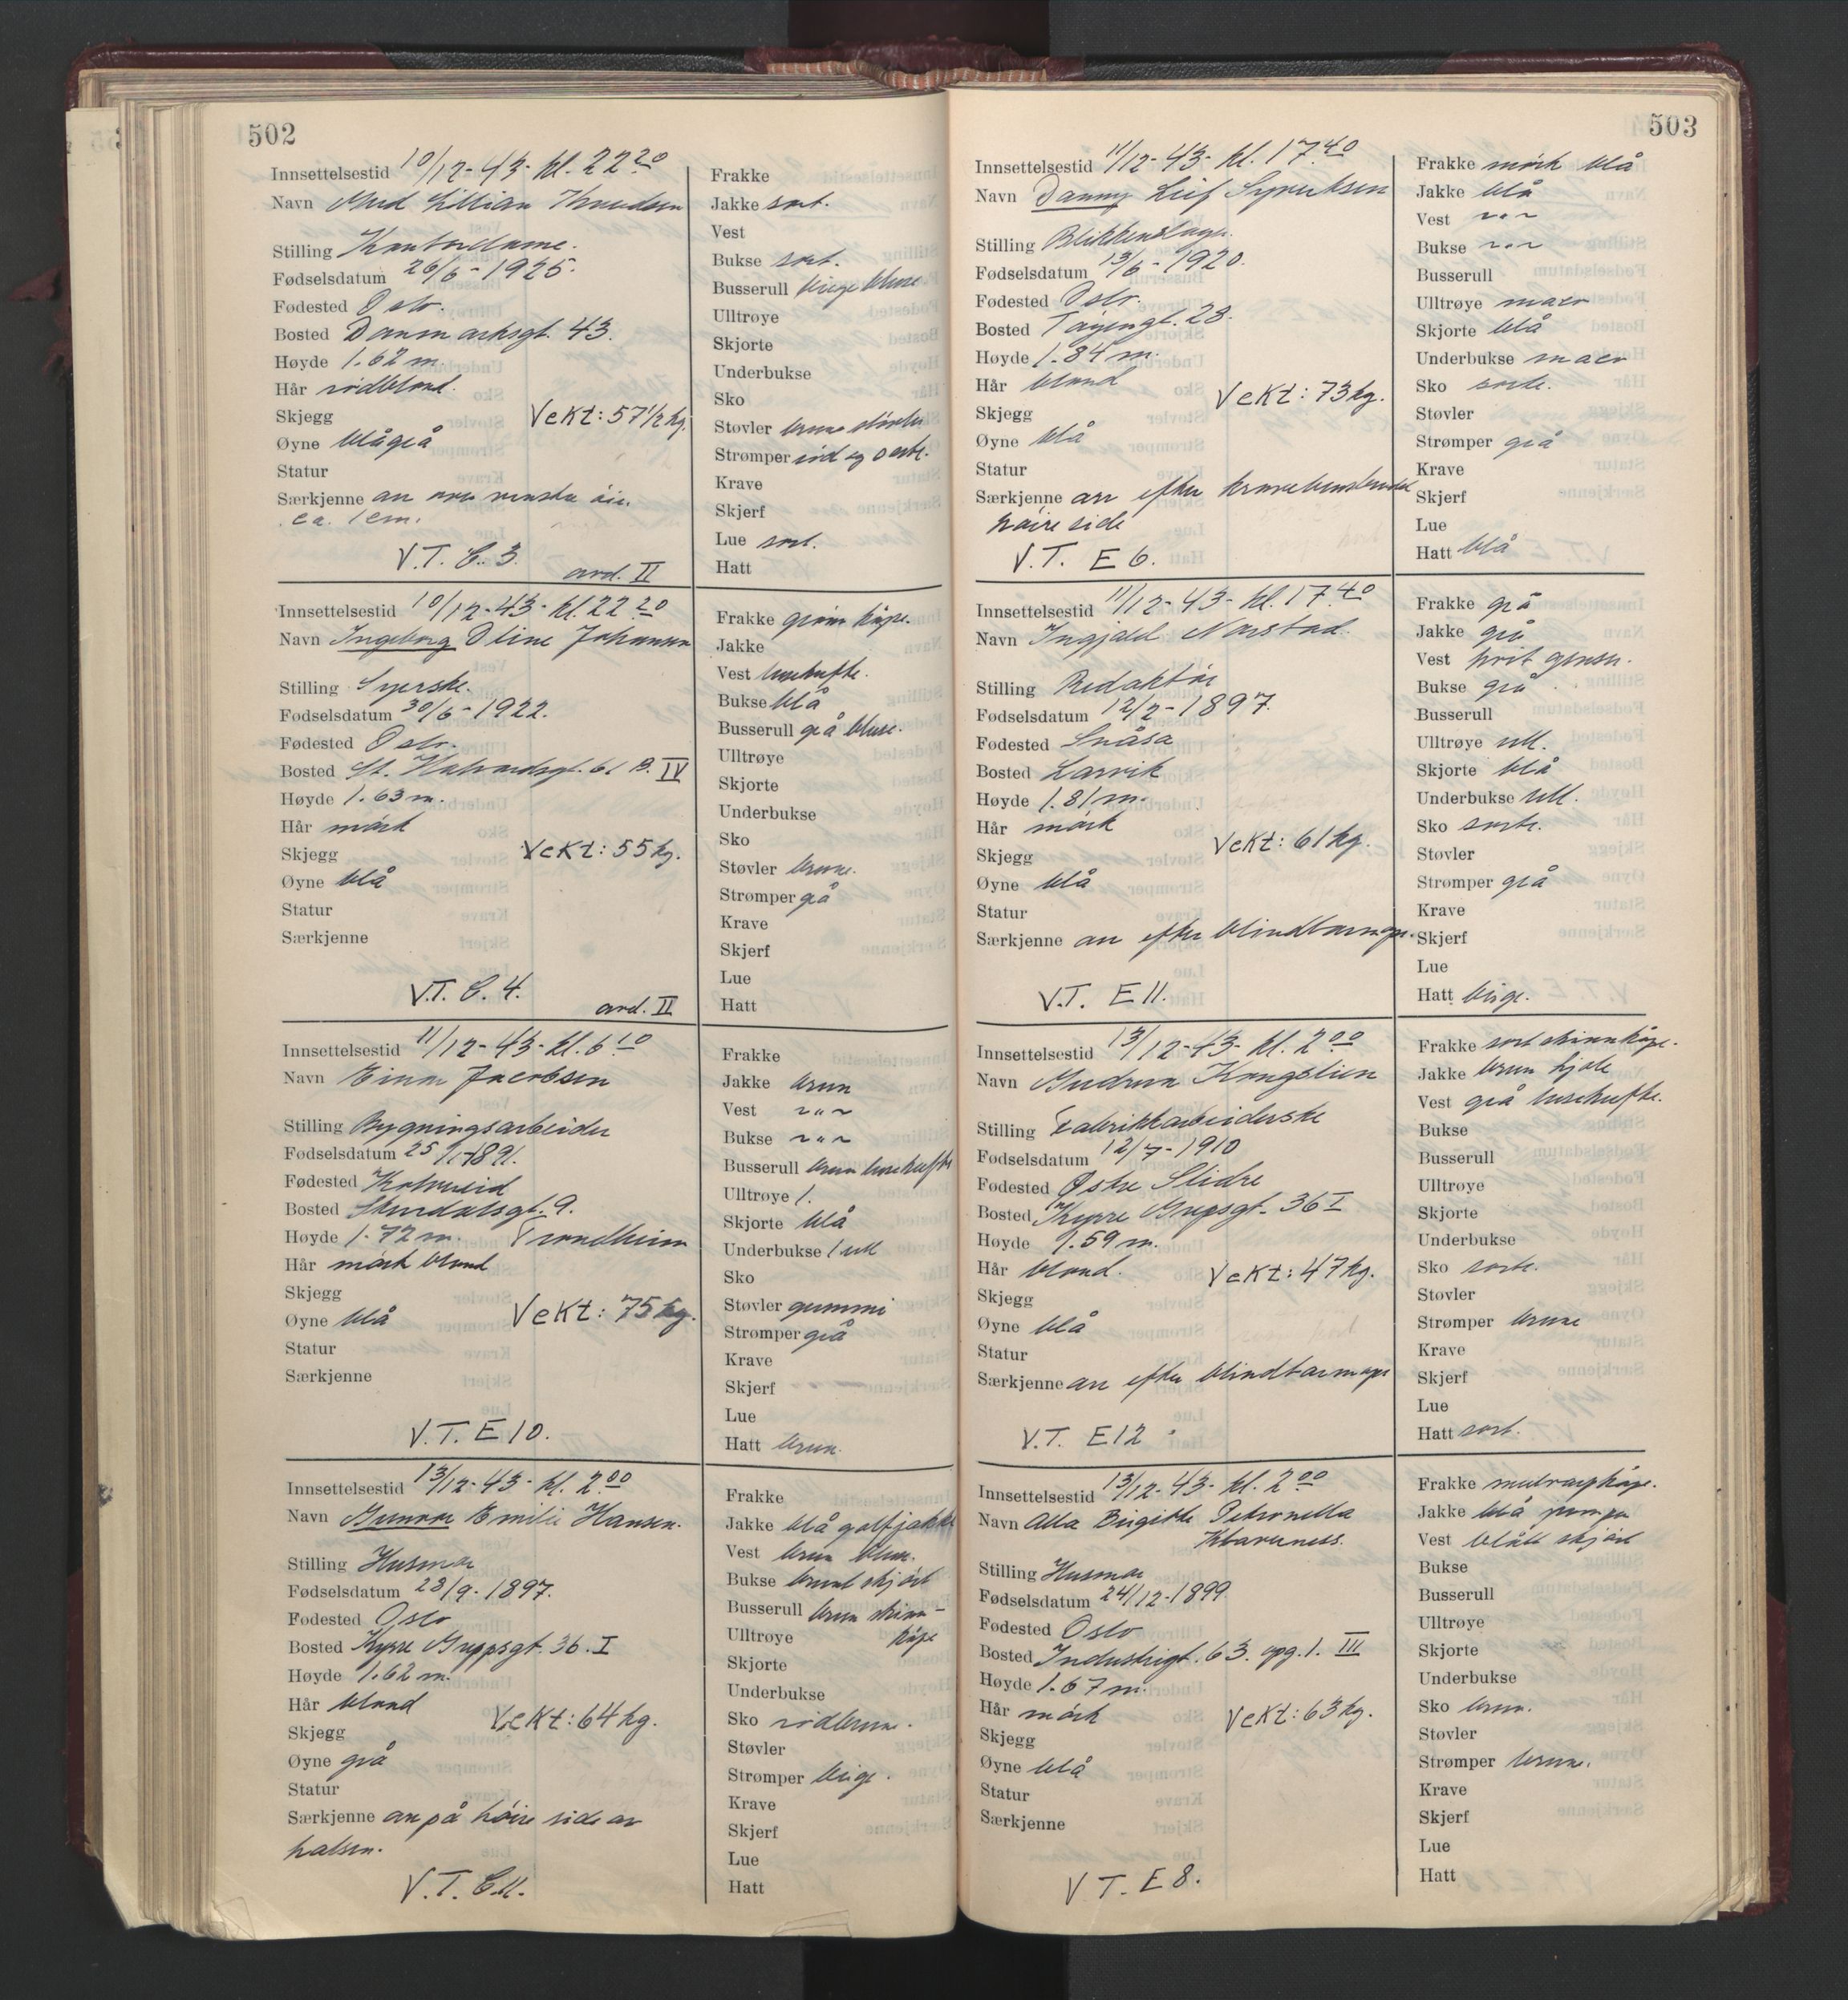 502
Innsettelsestid 10/12-43- kl. 22 20
Navn Lillian Knudsen
Stilling Kontordame.
Fødselsdatum 26/6-1925.
Fødested Oslo.
Bosted Danmarksgt. 43.
Høyde 1.62 m.
Hår rødblond.
Skjegg Vekt: 57 1/2 kg.
Øyne blågrå
Statur
Særkjenne arr over venstre øie.
ca. 1 cm.
V.T. C. 3. avd. II
Frakke
Jakke sort.
Vest
Bukse sort.
Busserull beige bluse
Ulltrøye
Skjorte
Underbukse
Sko
Støvler brune støvler
Strømper rød og sorte.
Krave
Skjerf
Lue sort.
Hatt
Innsettelsestid 10/12-43- kl. 22 20
Navn Ingeborg Oline Johansen
Stilling Syerske.
Fødselsdatum 30/6-1922.
Fødested Oslo.
Bosted St. Halvardsgt. 61 B. IV
Høyde 1.63 m.
Hår mørk
Skjegg Vekt: 55 kg.
Øyne blå
Statur
Særkjenne
V.T. C. 4. avd. II
Frakke grønn kåpe.
Jakke
Vest lusekufte.
Bukse blå
Busserull grå bluse.
Ulltrøye
Skjorte
Underbukse
Sko
Støvler brune.
Strømper grå
Krave
Skjerf
Lue
Hatt
Innsettelsestid 11/12-43- kl. 6 10
Navn Einar Jacobsen
Stilling Bygningsarbeider
Fødselsdatum 25/11-1891.
Fødested Kolvereid
Bosted Skurdalsgt. 9.
Høyde 1.72 m. Trondheim
Hår mørk blond
Skjegg
Øyne blå Vekt: 75 kg.
Statur
Særkjenne
V.T. E 10.
Frakke
Jakke brun
Vest ~"~
Bukse ~"~
Busserull brun lusekufte
Ulltrøye 1.
Skjorte blå
Underbukse 1 ull
Sko
Støvler gummi
Strømper grå
Krave
Skjerf
Lue
Hatt brun.
Innsettelsestid 13/12-43- kl. 2 00
Navn Gunvor Emilie Hansen.
Stilling Husmor
Fødselsdatum 28/9-1897.
Fødested Oslo
Bosted Kyrre Greppsgt. 36. I
Høyde 1.62 m.
Hår blond
Skjegg Vekt: 64 kg.
Øyne grå
Statur
Særkjenne arr på høire side av
halsen.
V.T. C. 11.
Frakke
Jakke blå golfjakke
Vest brun bluse.
Bukse brunt skjørt
Busserull brun skinn-
Ulltrøye kåpe
Skjorte
Underbukse
Sko rødbrune.
Støvler
Strømper beige.
Krave
Skjerf
Lue
Hatt
503
Innsettelsestid 11/12-43- kl. 17 40
Navn Danny Leif Syvertsen
Stilling Blikkenslager.
Fødselsdatum 13/6-1920.
Fødested Oslo.
Bosted Tøyengt. 28.
Høyde 1.84 m.
Hår blond
Skjegg Vekt: 73 kg.
Øyne blå
Statur
Særkjenne arr efter kravebensbrudd
høire side
V.T. E 6.
Frakke mørk blå
Jakke blå
Vest ~"~
Bukse ~"~
Busserull
Ulltrøye maco
Skjorte blå
Underbukse maco
Sko sorte.
Støvler
Strømper grå
Krave
Skjerf
Lue
Hatt blå
Innsettelsestid 11/12-43- kl. 17 40
Navn Ingjald Norstad.
Stilling Redaktør
Fødselsdatum 12/2-1897.
Fødested Snåsa
Bosted Larvik
Høyde 1.81 m.
Hår mørk
Skjegg Vekt: 61 kg.
Øyne blå
Statur
Særkjenne arr efter blindtarmopr.
V.T. E 11.
Frakke grå
Jakke grå
Vest hvit genser.
Bukse grå
Busserull
Ulltrøye ull.
Skjorte blå
Underbukse ull.
Sko sorte.
Støvler
Strømper grå
Krave
Skjerf
Lue
Hatt beige.
Innsettelsestid 13/12-43- kl. 2 00
Navn Gudrun Kongslien
Stilling Fabrikkarbeiderske
Fødselsdatum 12/7-1910
Fødested Østre Slidre
Bosted Kyrre Grepsgt. 36 I
Høyde 1.59 m.
Hår blond. Vekt: 47 kg.
Skjegg
Øyne blå
Statur
Særkjenne arr efter blindtarmopr
V.T. E 12
Frakke sort skinnkåpe.
Jakke brun kjole
Vest grå lusekufte.
Bukse
Busserull
Ulltrøye
Skjorte
Underbukse
Sko sorte.
Støvler
Strømper brune
Krave
Skjerf
Lue
Hatt sort.
Innsettelsestid 13/12-43- kl. 2 00
Navn Alla Birgitte Petronella
Klaveness.
Stilling Husmor
Fødselsdatum 24/12-1899
Fødested Oslo
Bosted Industrigt. 63. opg. 1. III
Høyde 1.67 m.
Hår mørk
Skjegg Vekt: 63 kg.
Øyne blå
Statur
Særkjenne
V.T. E 8.
Frakke muldvarpkåpe.
Jakke blå jumper
Vest blått skjørt
Bukse
Busserull
Ulltrøye
Skjorte
Underbukse
Sko brun.
Støvler
Strømper brune.
Krave
Skjerf
Lue
Hatt